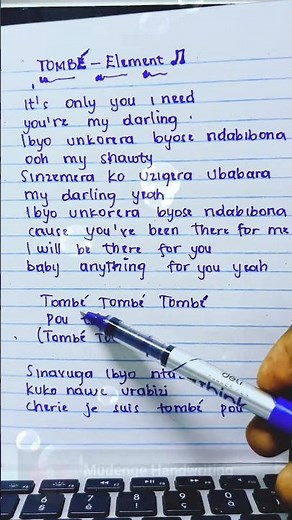 TOMBÉ – Element
It's only you I need
you're my darling.
Ibyo unkorera byose ndabibona
ooh my shawty
Sinzemera ko uzigera ubabara
my darling yeah
Ibyo unkorera byose ndabibona
cause you've been there for me
I will be there for you
baby anything for you yeah
Tombé Tombé Tombé
pou
(Tombé
Sinavuga ibyo
kuko nawe urabizi
cherie je suis tombé pou
deli
think
Mudenge Handwriting